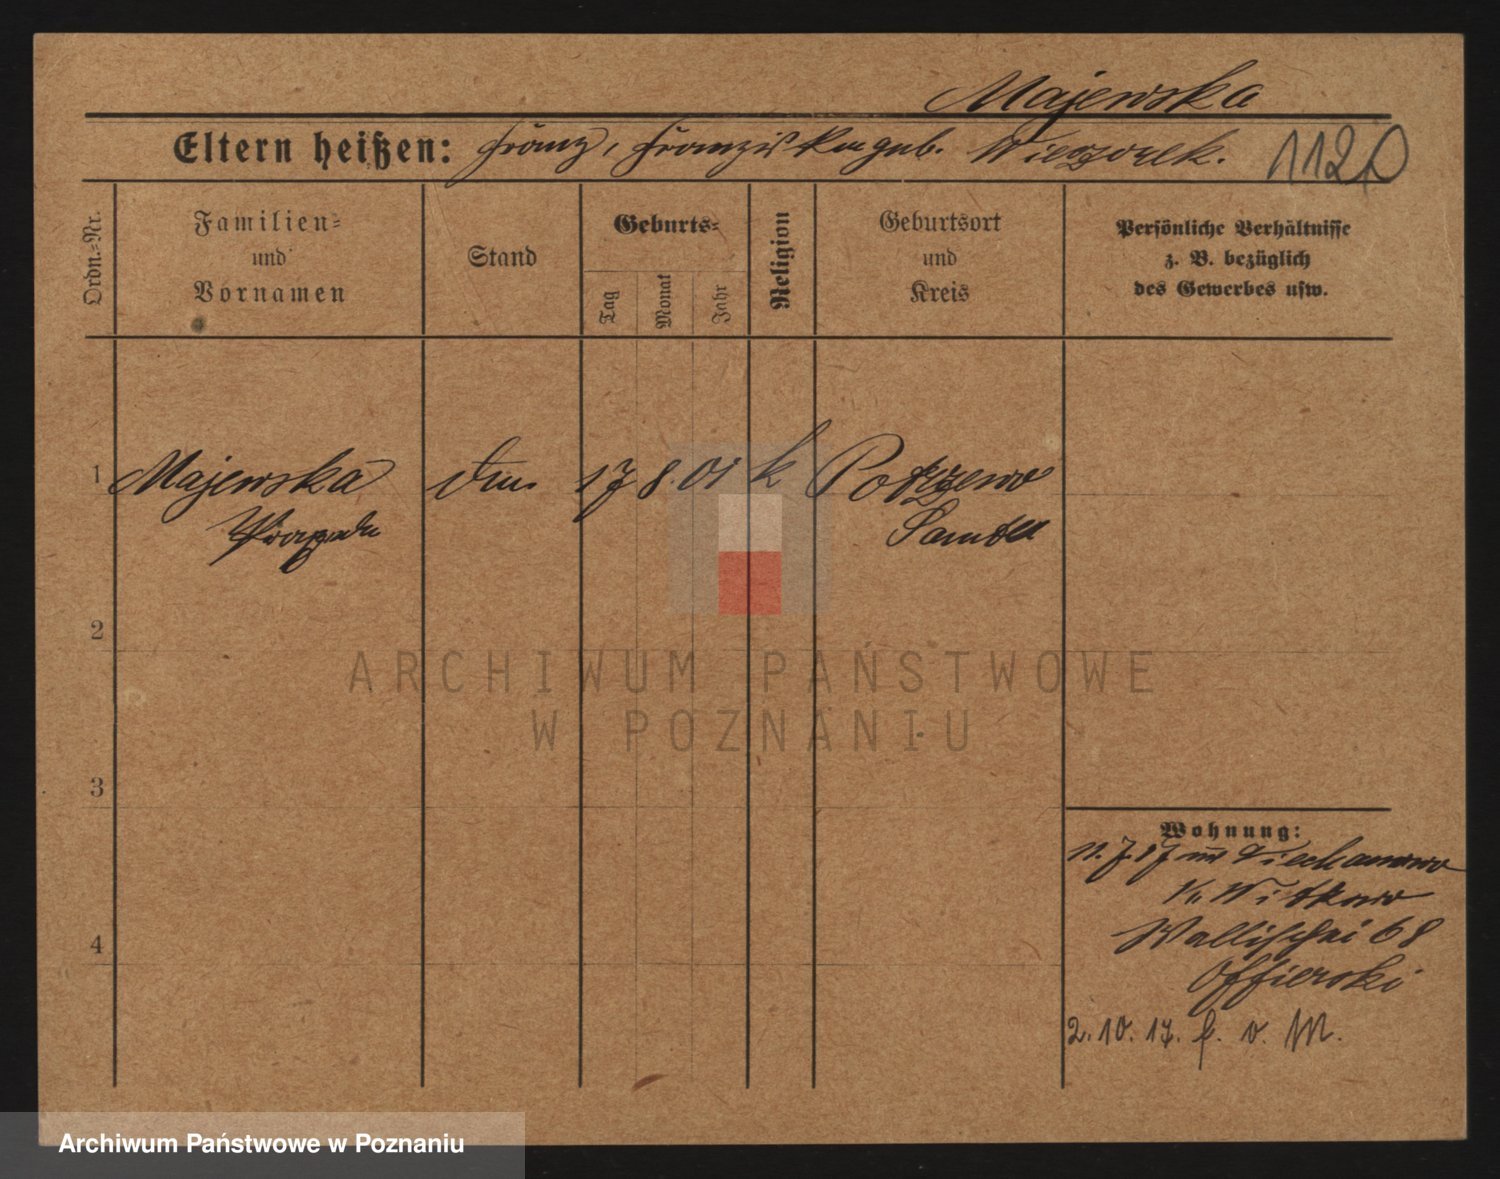 Majewska
Eltern heißen: Franz, Franziska geb. Wieczorek. 112
Ordn.=Nr.
Familien=
und
Vornamen
Stand
Geburts=
Tag
Monat
Jahr
Religion
Geburtsort
und
Kreis
Persönliche Verhältnisse
z. B. bezüglich
des Gewerbes usw.
1 Majewska 17 8. 01 k
Praxeda Samter
2
ARCHIWUM PAŃSTWOWE
W POZNANIU
3
4
Wohnung:
11. 7. 17
Kr. Witkowo
Wallischei 68
Offierski
2. 10. 17. f. v. M.
Archiwum Państwowe w Poznaniu